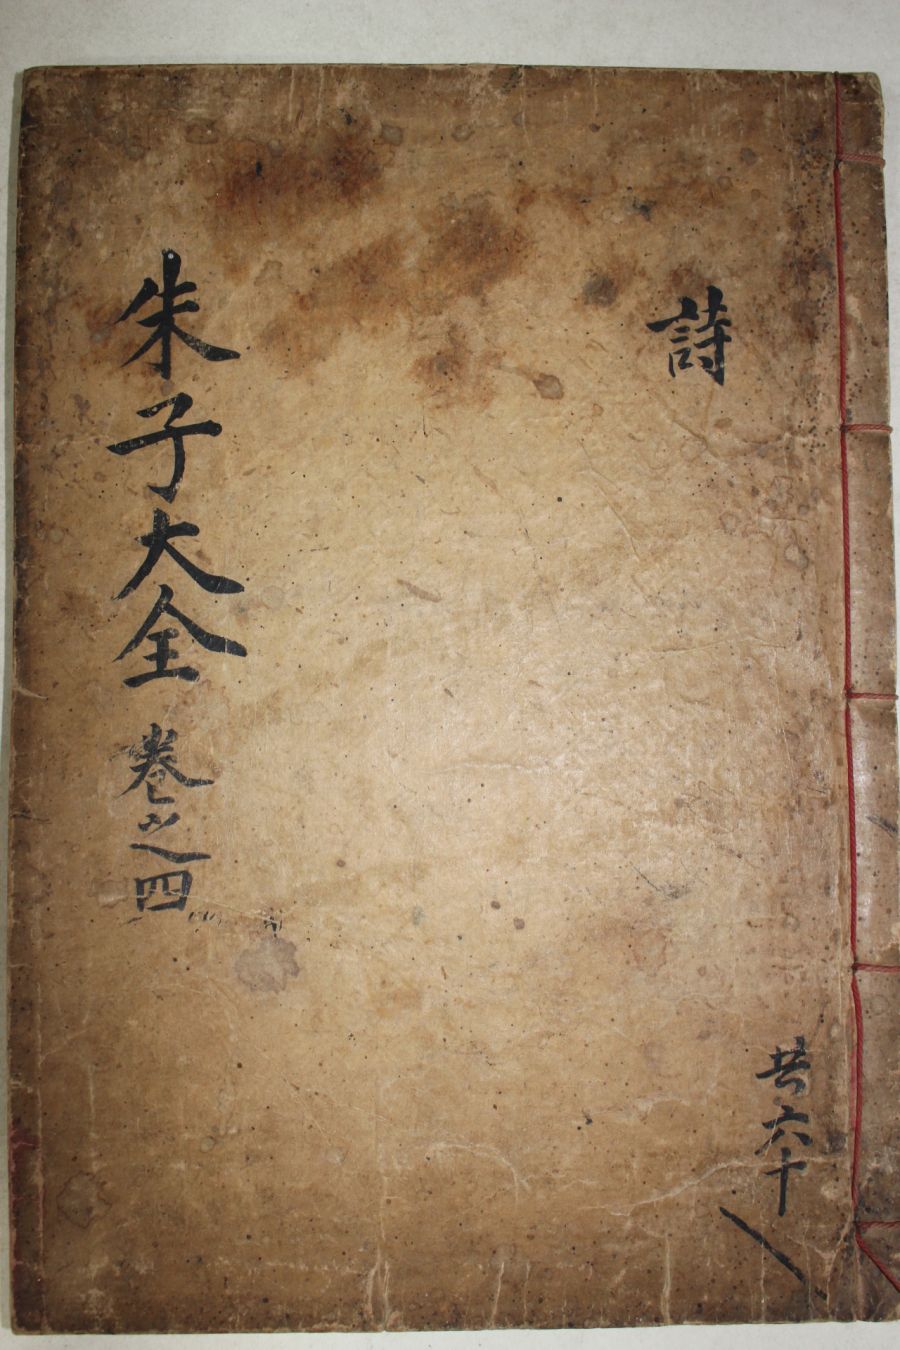 詩
共六十
朱子大全 卷之四